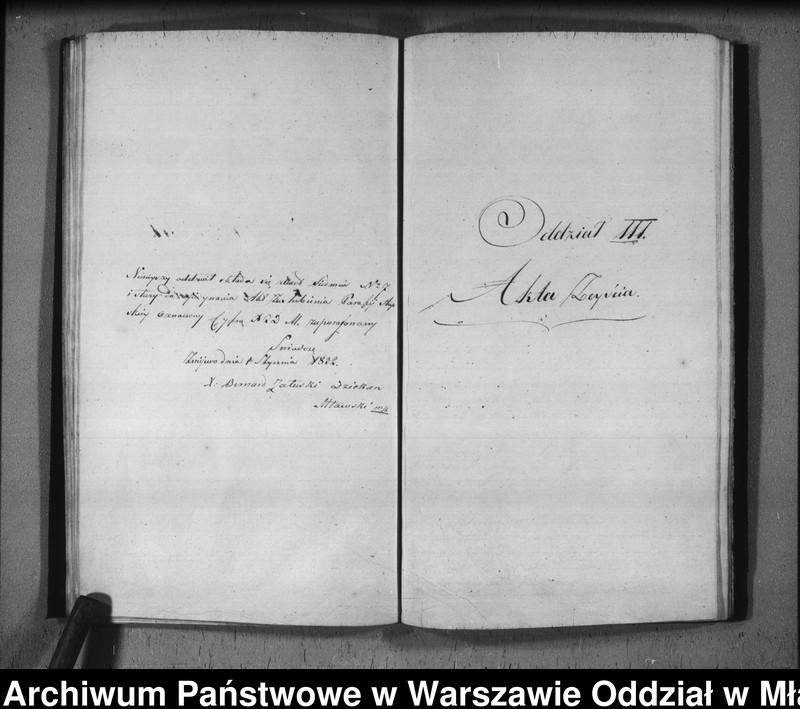 Ninieyszy oddział składa się z kart Siedmiu No 7
i służy do zapisywania Akt Zaślubienia Parafii
oznaczony Cyfrą X 22 M. zaparafowany
Świadczę
dnia 1 Stycznia 1822.
X. Bernard Załuski Dziekan
Mławski mp
Oddział III.
Akta Zeyścia.
Archiwum Państwowe w Warszawie Oddział w Mła